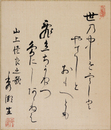 世乃中をうしと
やさしと
おもへとも
飛立ちかねつ
鳥にしあらねは
山上憶良之歌